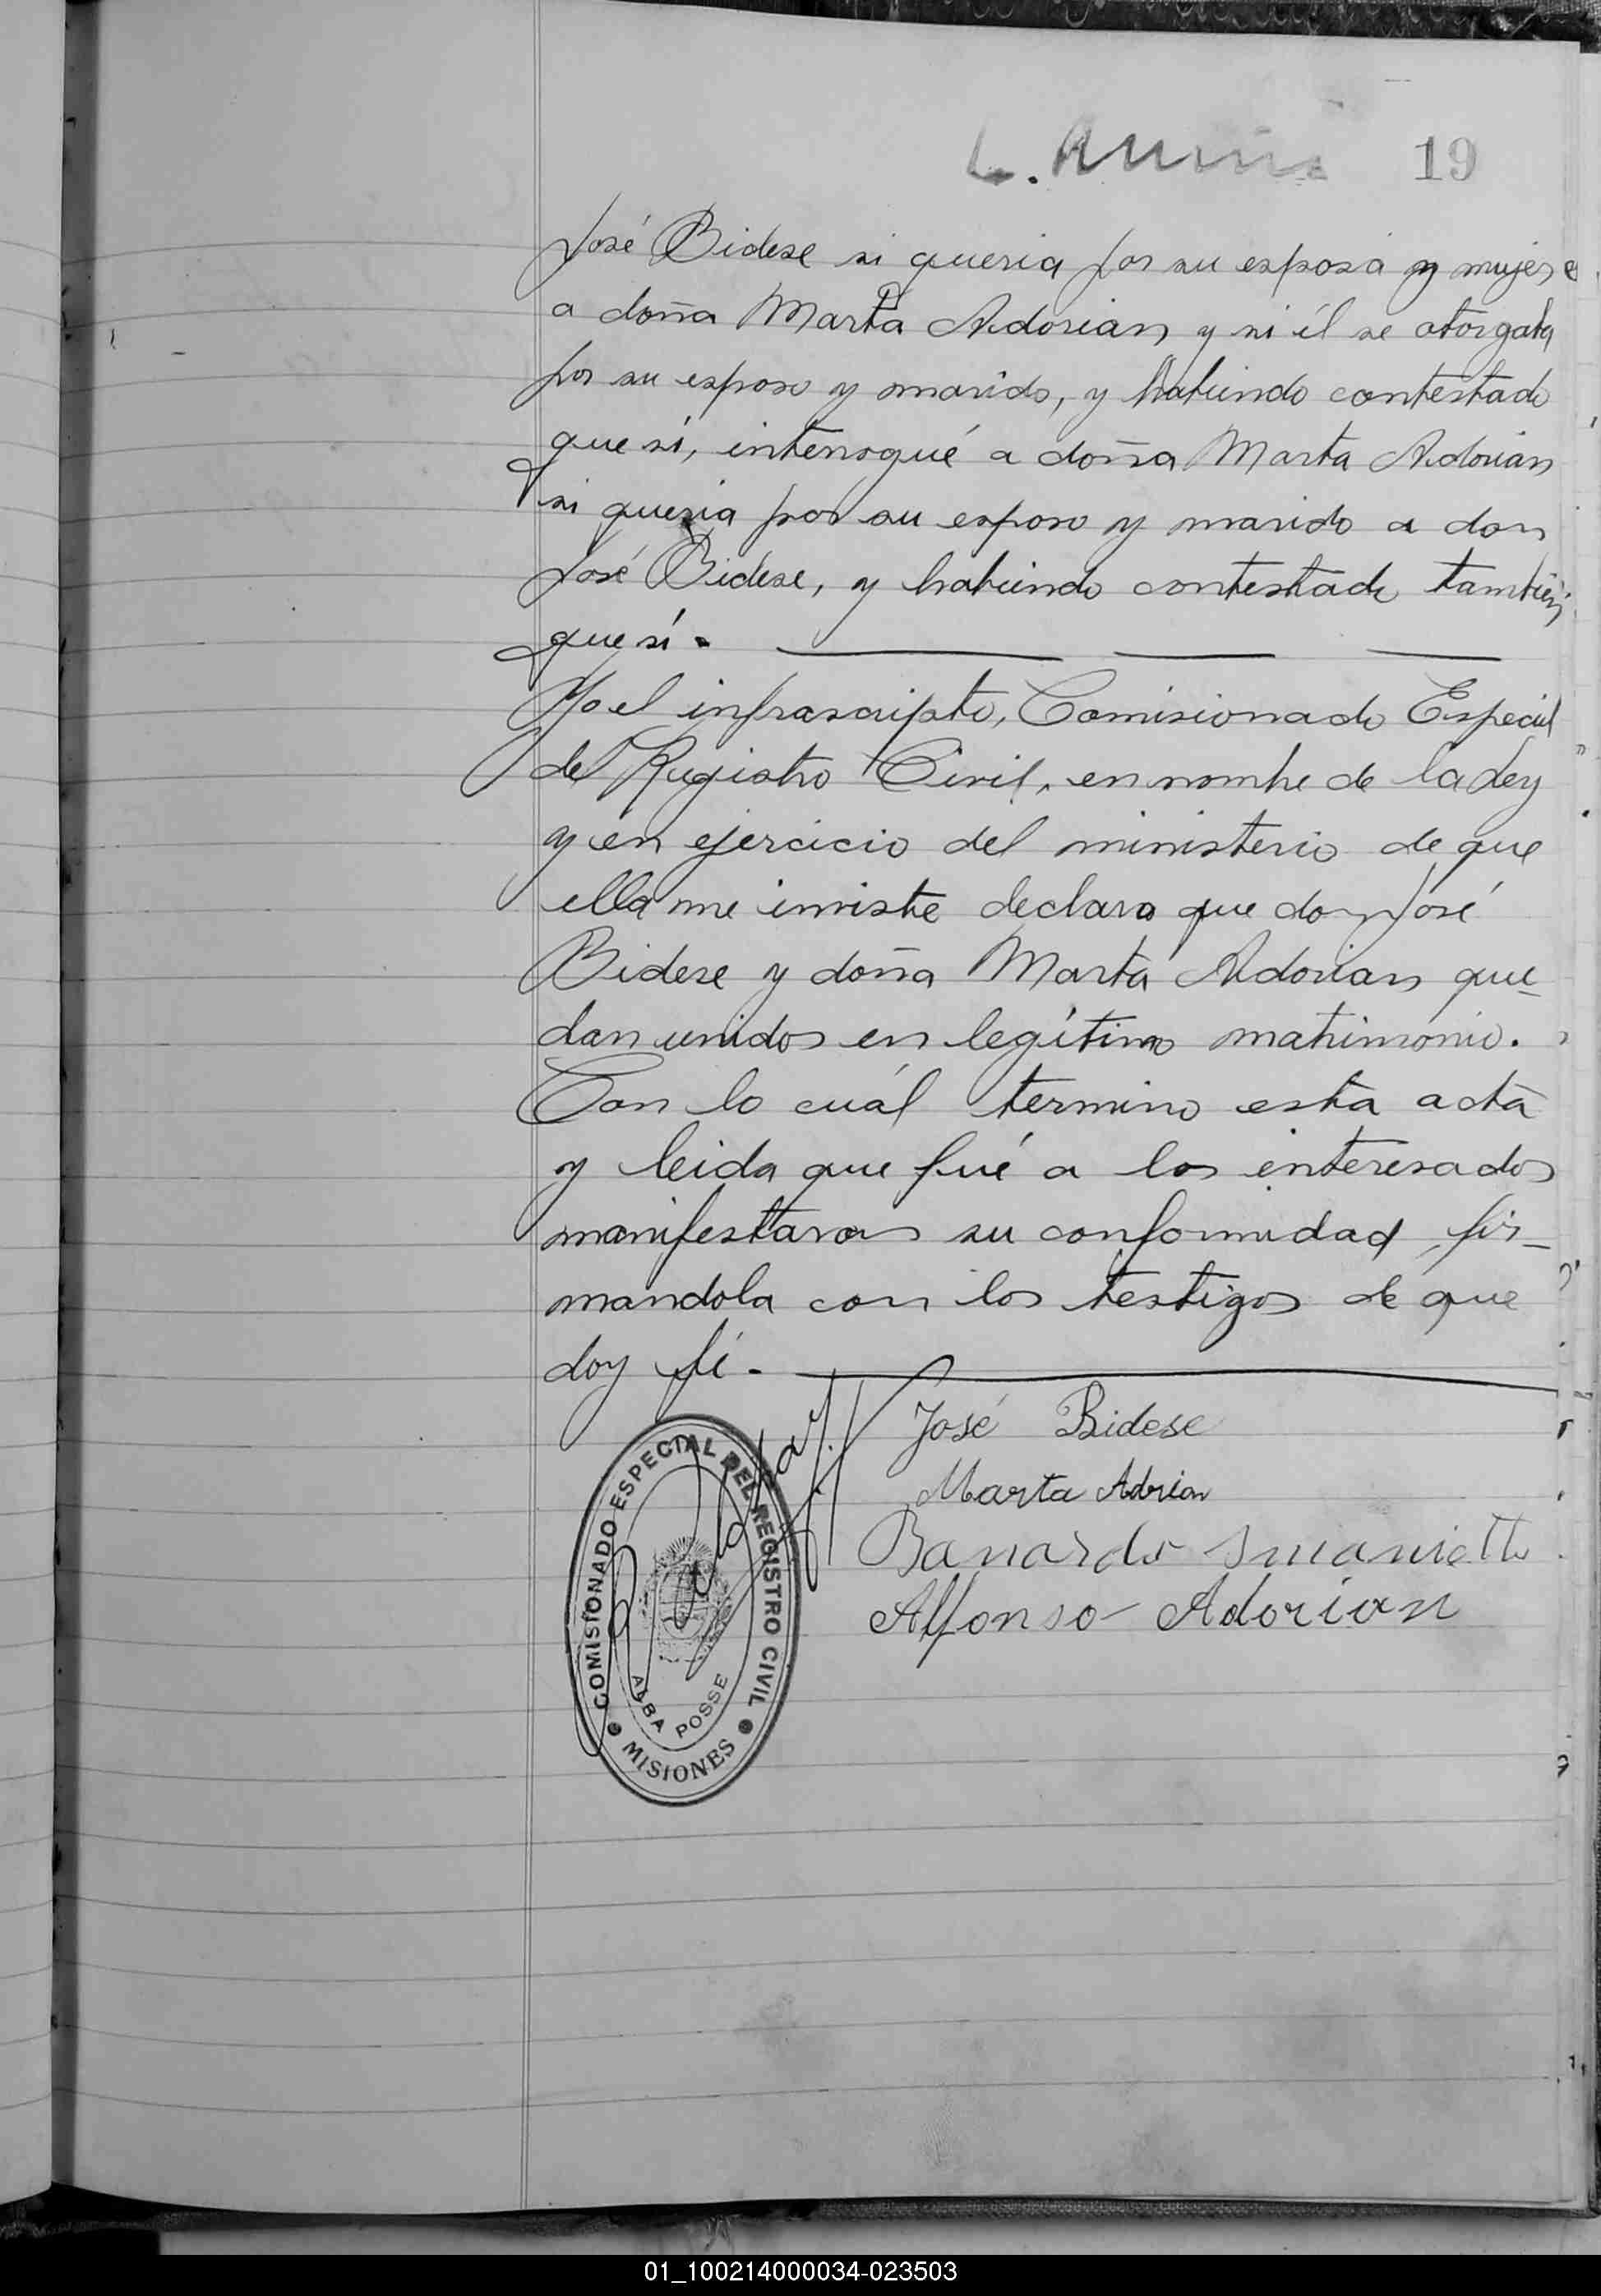 19
José Bidese si queria por su esposa y mujer
a doña Marta Adorian y si él se otorgaba
por su esposo y marido, y habiendo contestado
que sí, interrogué a doña Marta Adorian
si queria por su esposo y marido a don
José Bidese, y habiendo contestado también
que sí.
Yo el infrascripto, Comisionado Especial
del Registro Civil, en nombre de la Ley
y en ejercicio del ministerio de que
ella me inviste declaro que don José
Bidese y doña Marta Adorian que-
dan unidos en legítimo matrimonio.
Con lo cuál termino esta acta
y leida que fué a los interesados
manifestaron su conformidad, fir-
mandola con los testigos de que
doy fé.
José Bidese
Marta Adrian
Alfonso Adorian
COMISIONADO ESPECIAL DEL REGISTRO CIVIL
ALBA POSSE
MISIONES
01_100214000034-023503